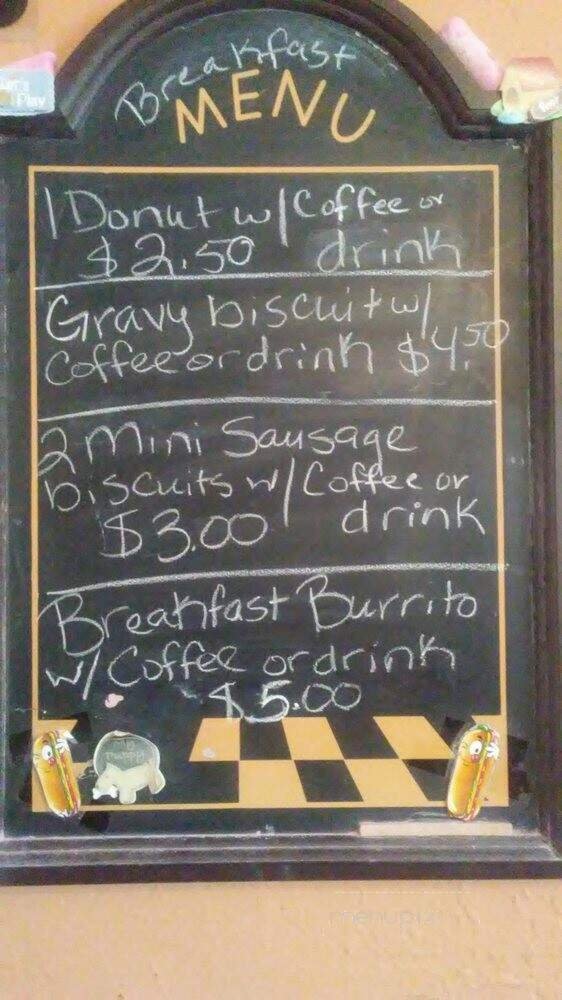 Breakfast
MENU
Play
1 Donut w/ Coffee or
$2.50 drink
Gravy biscuit w/
Coffee or drink $4.50
2 Mini Sausage
biscuits w/ Coffee or
$3.00 drink
Breakfast Burrito
w/ Coffee or drink
$5.00
menupix